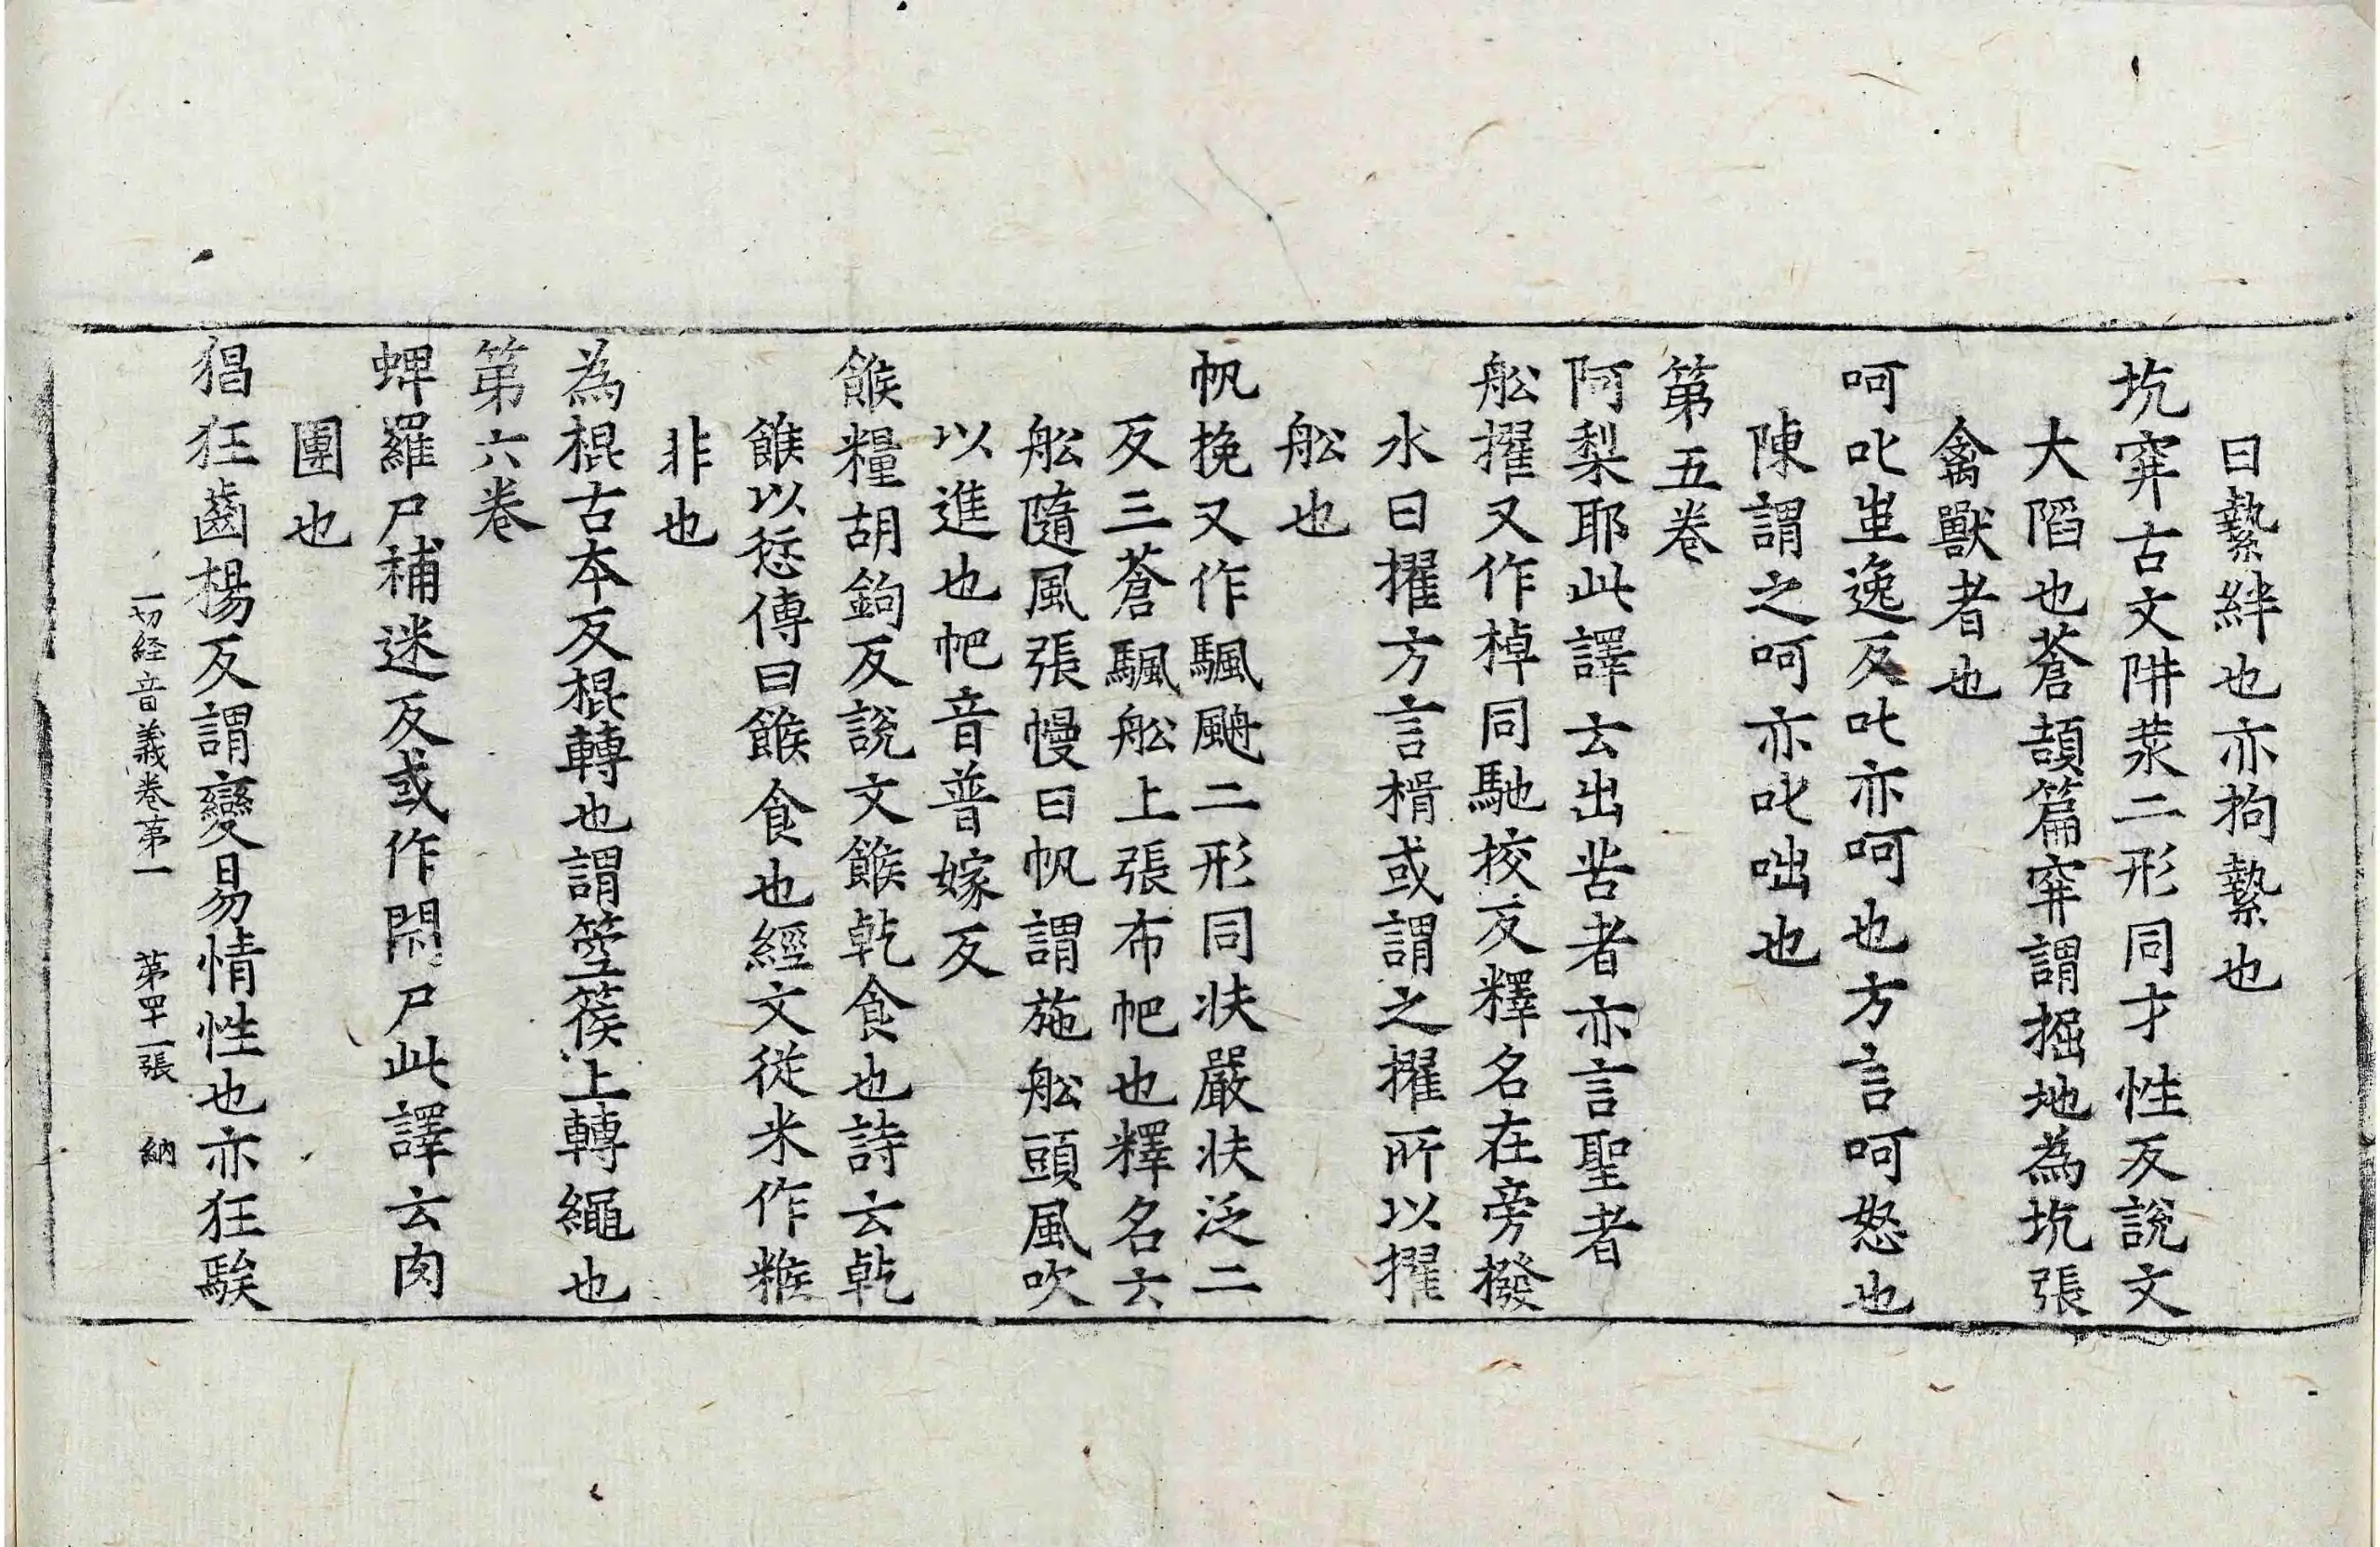 曰縶絆也亦拘縶也
坑穽古文阱汬二形同才性反說文
大陷也蒼頡篇穽謂掘地為坑張
禽獸者也
呵叱齒逸反叱亦呵也方言呵怒也
陳謂之呵亦叱咄也
第五卷
阿梨耶此譯云出苦者亦言聖者
舩擢又作棹同馳挍反釋名在旁撥
水曰擢方言楫或謂之擢所以擢
舩也
帆挽又作颿䑺二形同扶嚴扶泛二
反三蒼颿舩上張布帊也釋名云
舩隨風張幔曰帆謂施舩頭風吹
以進也帊音普嫁反
餱糧胡鉤反說文餱乾食也詩云乾
餱以愆傳曰餱食也經文從米作糇
非也
為棍古本反棍轉也謂箜篌上轉繩也
第六卷
蜱羅尸補迷反或作閇尸此譯云肉
團也
猖狂齒楊反謂變易情性也亦狂騃
一切経音義卷第一　第四十一張　納